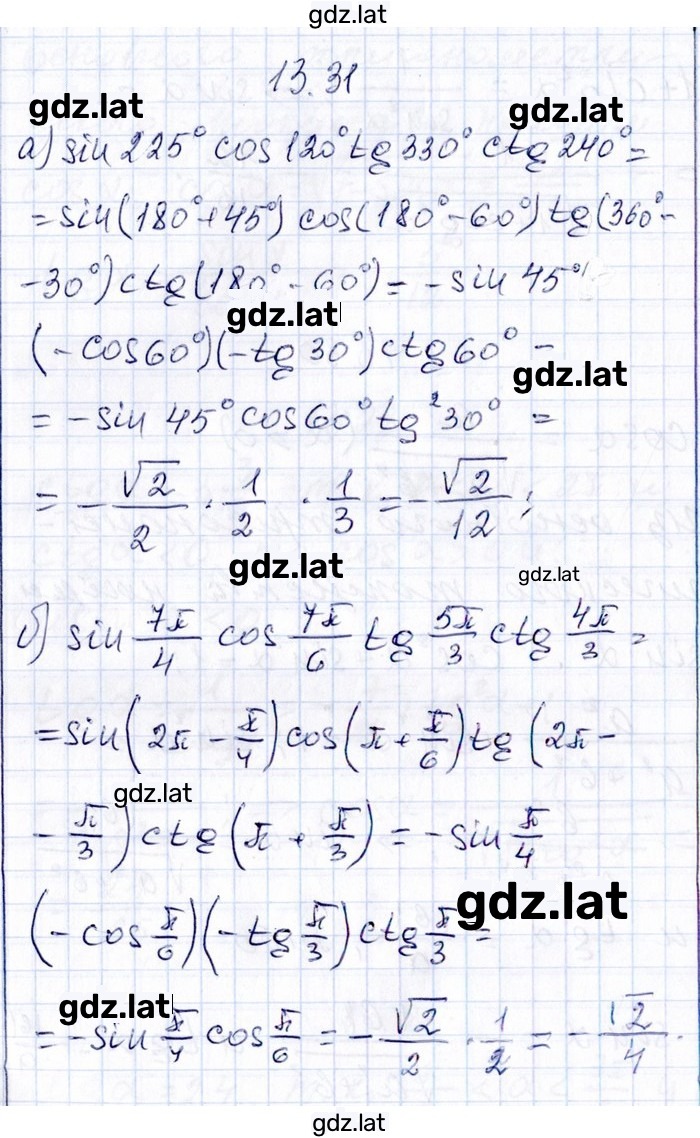 gdz.lat
13.31
gdz.lat gdz.lat
а) sin 225° cos 120° tg 330° ctg 240° =
= sin(180° + 45°) cos(180° - 60°) tg(360° -
- 30°) ctg(180° - 60°) = - sin 45°
gdz.lat
(- cos 60°)(- tg 30°) ctg 60° -
gdz.lat
= - sin 45° cos 60° tg² 30° =
= - √2/2 · 1/2 · 1/3 = - √2/12 ;
gdz.lat gdz.lat
б) sin 7π/4 cos 7π/6 tg 5π/3 ctg 4π/3 =
= sin(2π - π/4) cos(π + π/6) tg (2π -
gdz.lat
- π/3) ctg (π + π/3) = - sin π/4
gdz.lat
(- cos π/6)(- tg π/3) ctg π/3 =
gdz.lat
= - sin π/4 cos π/6 = - √2/2 · 1/2 = - √2/4 .
gdz.lat